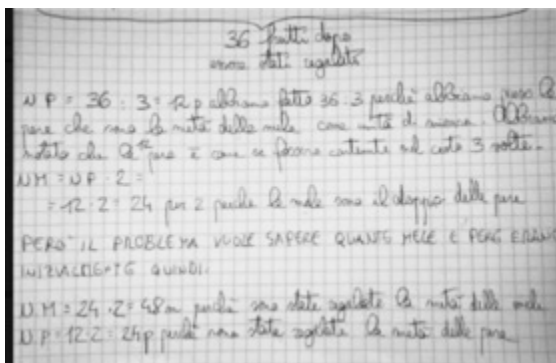 36 frutti dopo
erano stati regalati
N P = 36 : 3 = 12 p abbiamo fatto 36 : 3 perché abbiamo preso le
pere che sono la metà delle mele come unità di misura. Abbiamo
notato che le 12 pere è come se fossero contenute nel cesto 3 volte.
N M = N P · 2 =
= 12 · 2 = 24 per 2 perché le mele sono il doppio delle pere
PERÒ IL PROBLEMA VUOLE SAPERE QUANTE MELE E PERE ERANO
INIZIALMENTE QUINDI:
N. M = 24 · 2 = 48 m perché sono state regalate la metà delle mele
N. P = 12 · 2 = 24 p perché sono state regalate la metà delle pere